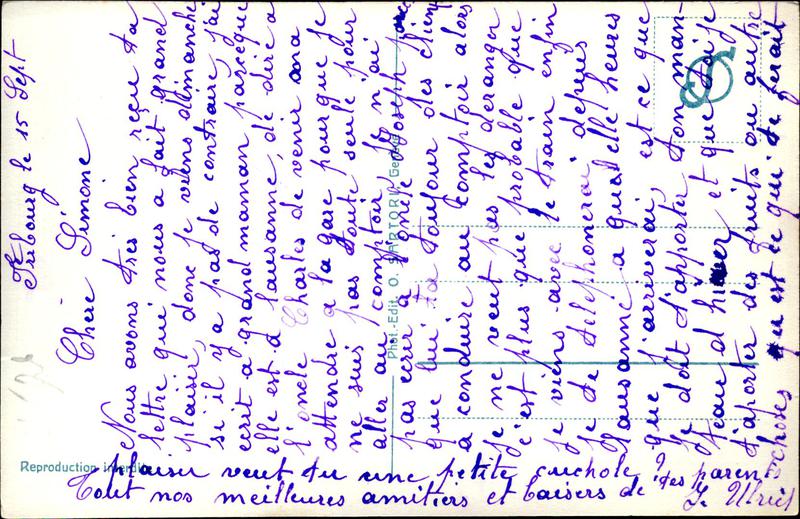 Fribourg le 15 Sept
Chère Simone
Nous avons très bien reçu ta
lettre qui nous a fait grand
plaisir, donc je viens dimanche
si il y a pas de contraire, j'ai
ecrit a grand maman parceque
elle est à lausanne, de dire a
l'oncle Charles de venir ma
attendre a la gare pourque je
ne suis pas toute seule pour
aller au comptoir. Je n'ai
pas ecrir à Joseph
que lui a toujour des clients
a conduire au comptoir alors
je ne veut pas les déranger
c'est plus que probable que
je viens avec le train enfin
je te téléphonerai depuis
Lausanne a quel'elle heures
que j'arriverai, est ce que
je doit t'apporter ton man-
teau d'hiver et que dois je
t'aporter des fruits ou autre
choses qu'est ce qui te ferait
plaisir veut tu une petite cuchole?
Tout nos meilleures amitiers et baisers de tes parents
J. Ulrich
Phot.-Edit. O. SARTORI, Genève
Reproduction interdite